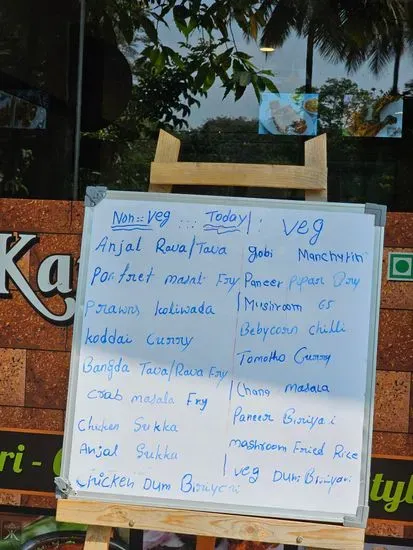 Non :: Veg ... Today : Veg
Anjal Rava/Tava
Pomfret masal Fry
Prawns koliwada
koddai Curry
Bangda Tava/Rava Fry
Crab masala Fry
Chicken Sukka
Anjal Sukka
Chicken Dum Biriyani
gobi Manchurin
Paneer Pepar Dry
Mushroom 65
Bebycorn chilli
Tomotho Curry
Chana Masala
Paneer Biriyai
mashroom Fried Rice
Veg Dum Biriyani
Ka
ri -